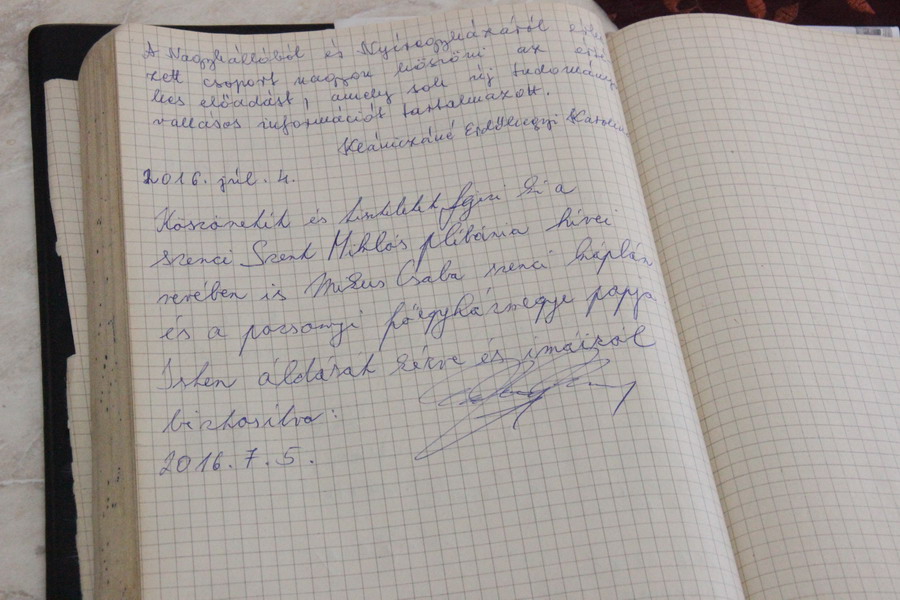 A Nagykállóból és Nyíregyházáról érke
zett csoport nagyon köszöni az érté
kes előadást, amely sok új tudomány
vallásos információt tartalmazott.
Erdőhegyi Katalin
2016. júl. 4.
Köszönetét és tiszteletét fejezi ki a
szenci Szent Miklós plébánia hívei
nevében is Mikus Csaba szenci káplán
és a pozsonyi főegyházmegye papja
Isten áldását kérve és imáiról
biztosítva:
2016. 7. 5.